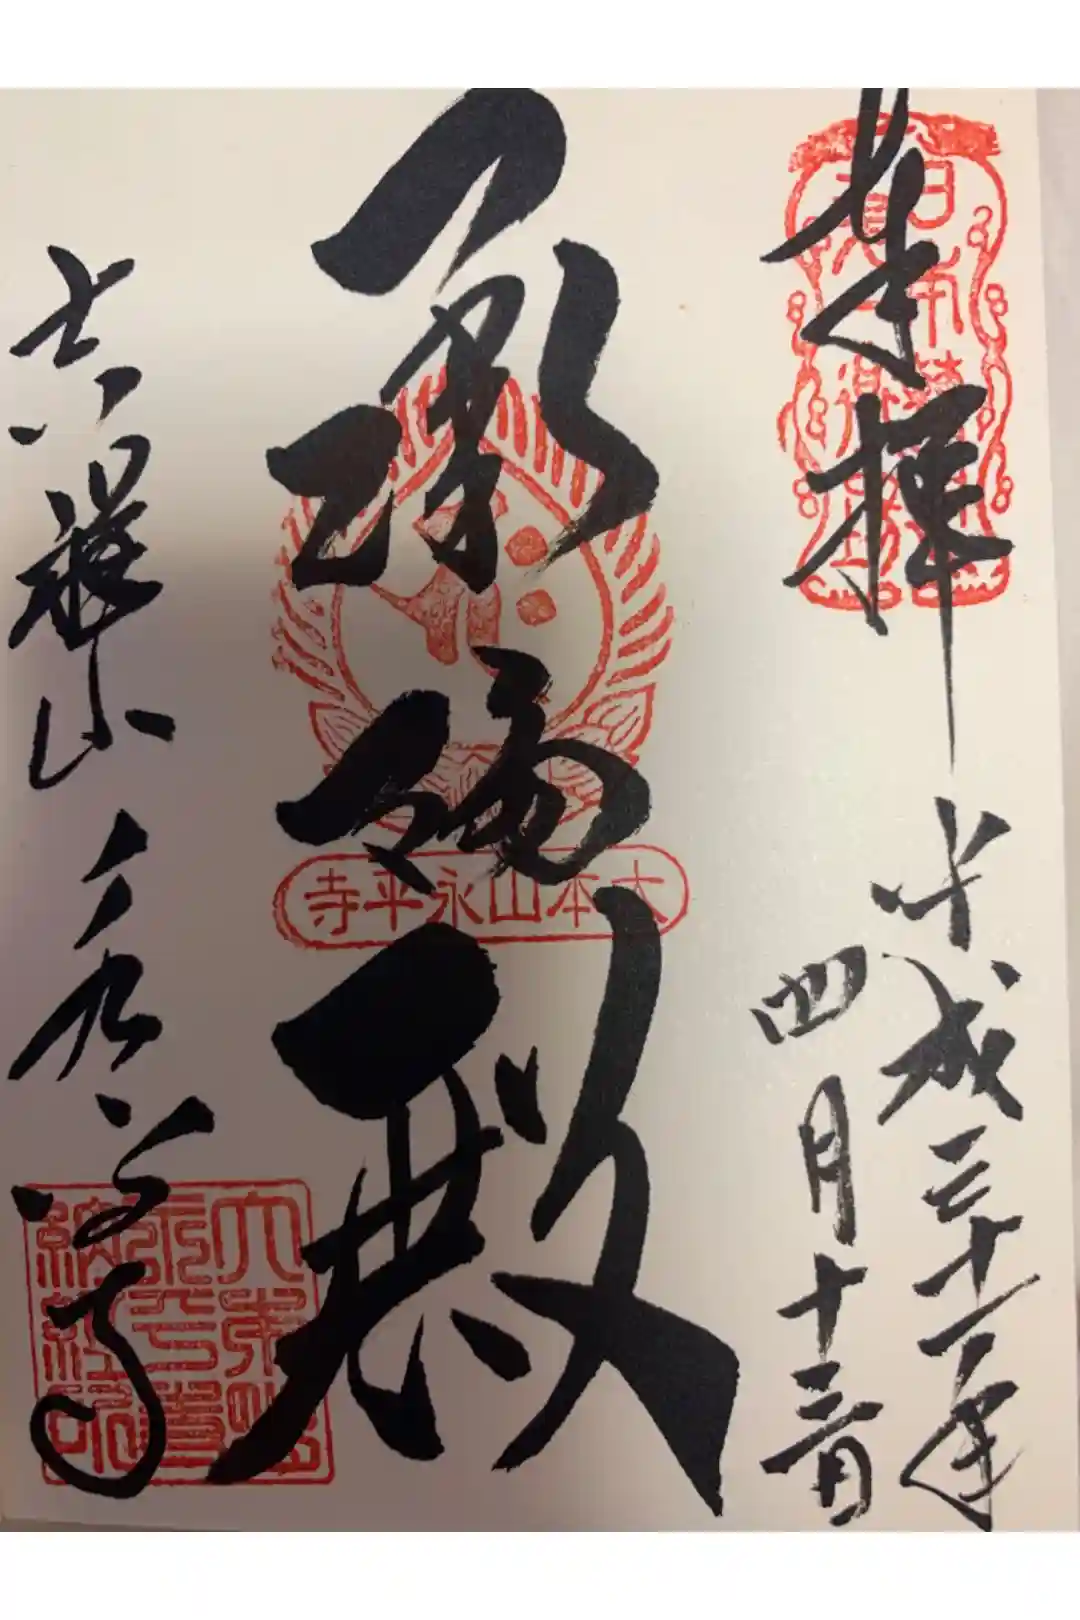 奉拝
平成三十一年
四月十三日
承陽殿
大本山永平寺
吉祥山永平寺
日本曹洞
大本山永平寺納経印